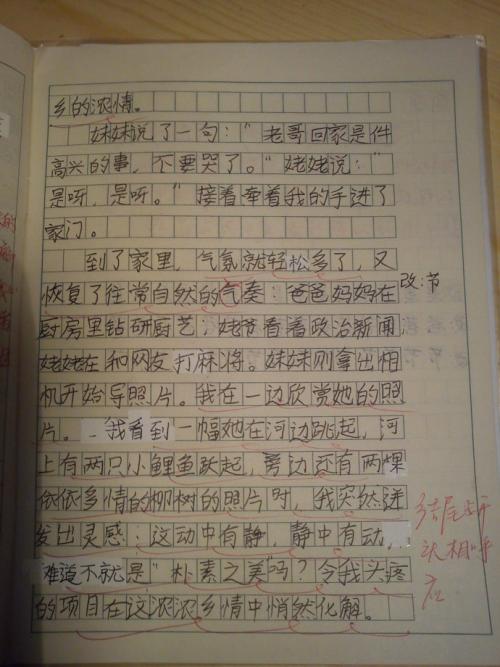 乡的浓情。
妹妹说了一句：“老哥回家是件
高兴的事，不要哭了。“姥姥说：“
是呀，是呀。”接着牵着我的手进了
家门。
到了家里，气氛就轻松多了，又
恢复了往常自然的气奏：爸爸妈妈在
改：节
厨房里钻研厨艺；姥爷看着政治新闻；
姥姥在和网友打麻将。妹妹则拿出相
机开始导照片。我在一边欣赏她的照
片。我看到一幅她在河边跳起，河
上有两只小鲤鱼跃起，旁边还有两棵
依依多情的柳树的照片时，我突然迸
发出灵感：这动中有静，静中有动，
难道不就是“朴素之美”吗？令我头疼
的项目在这浓浓乡情中悄然化解。
结尾与开
头相呼
应